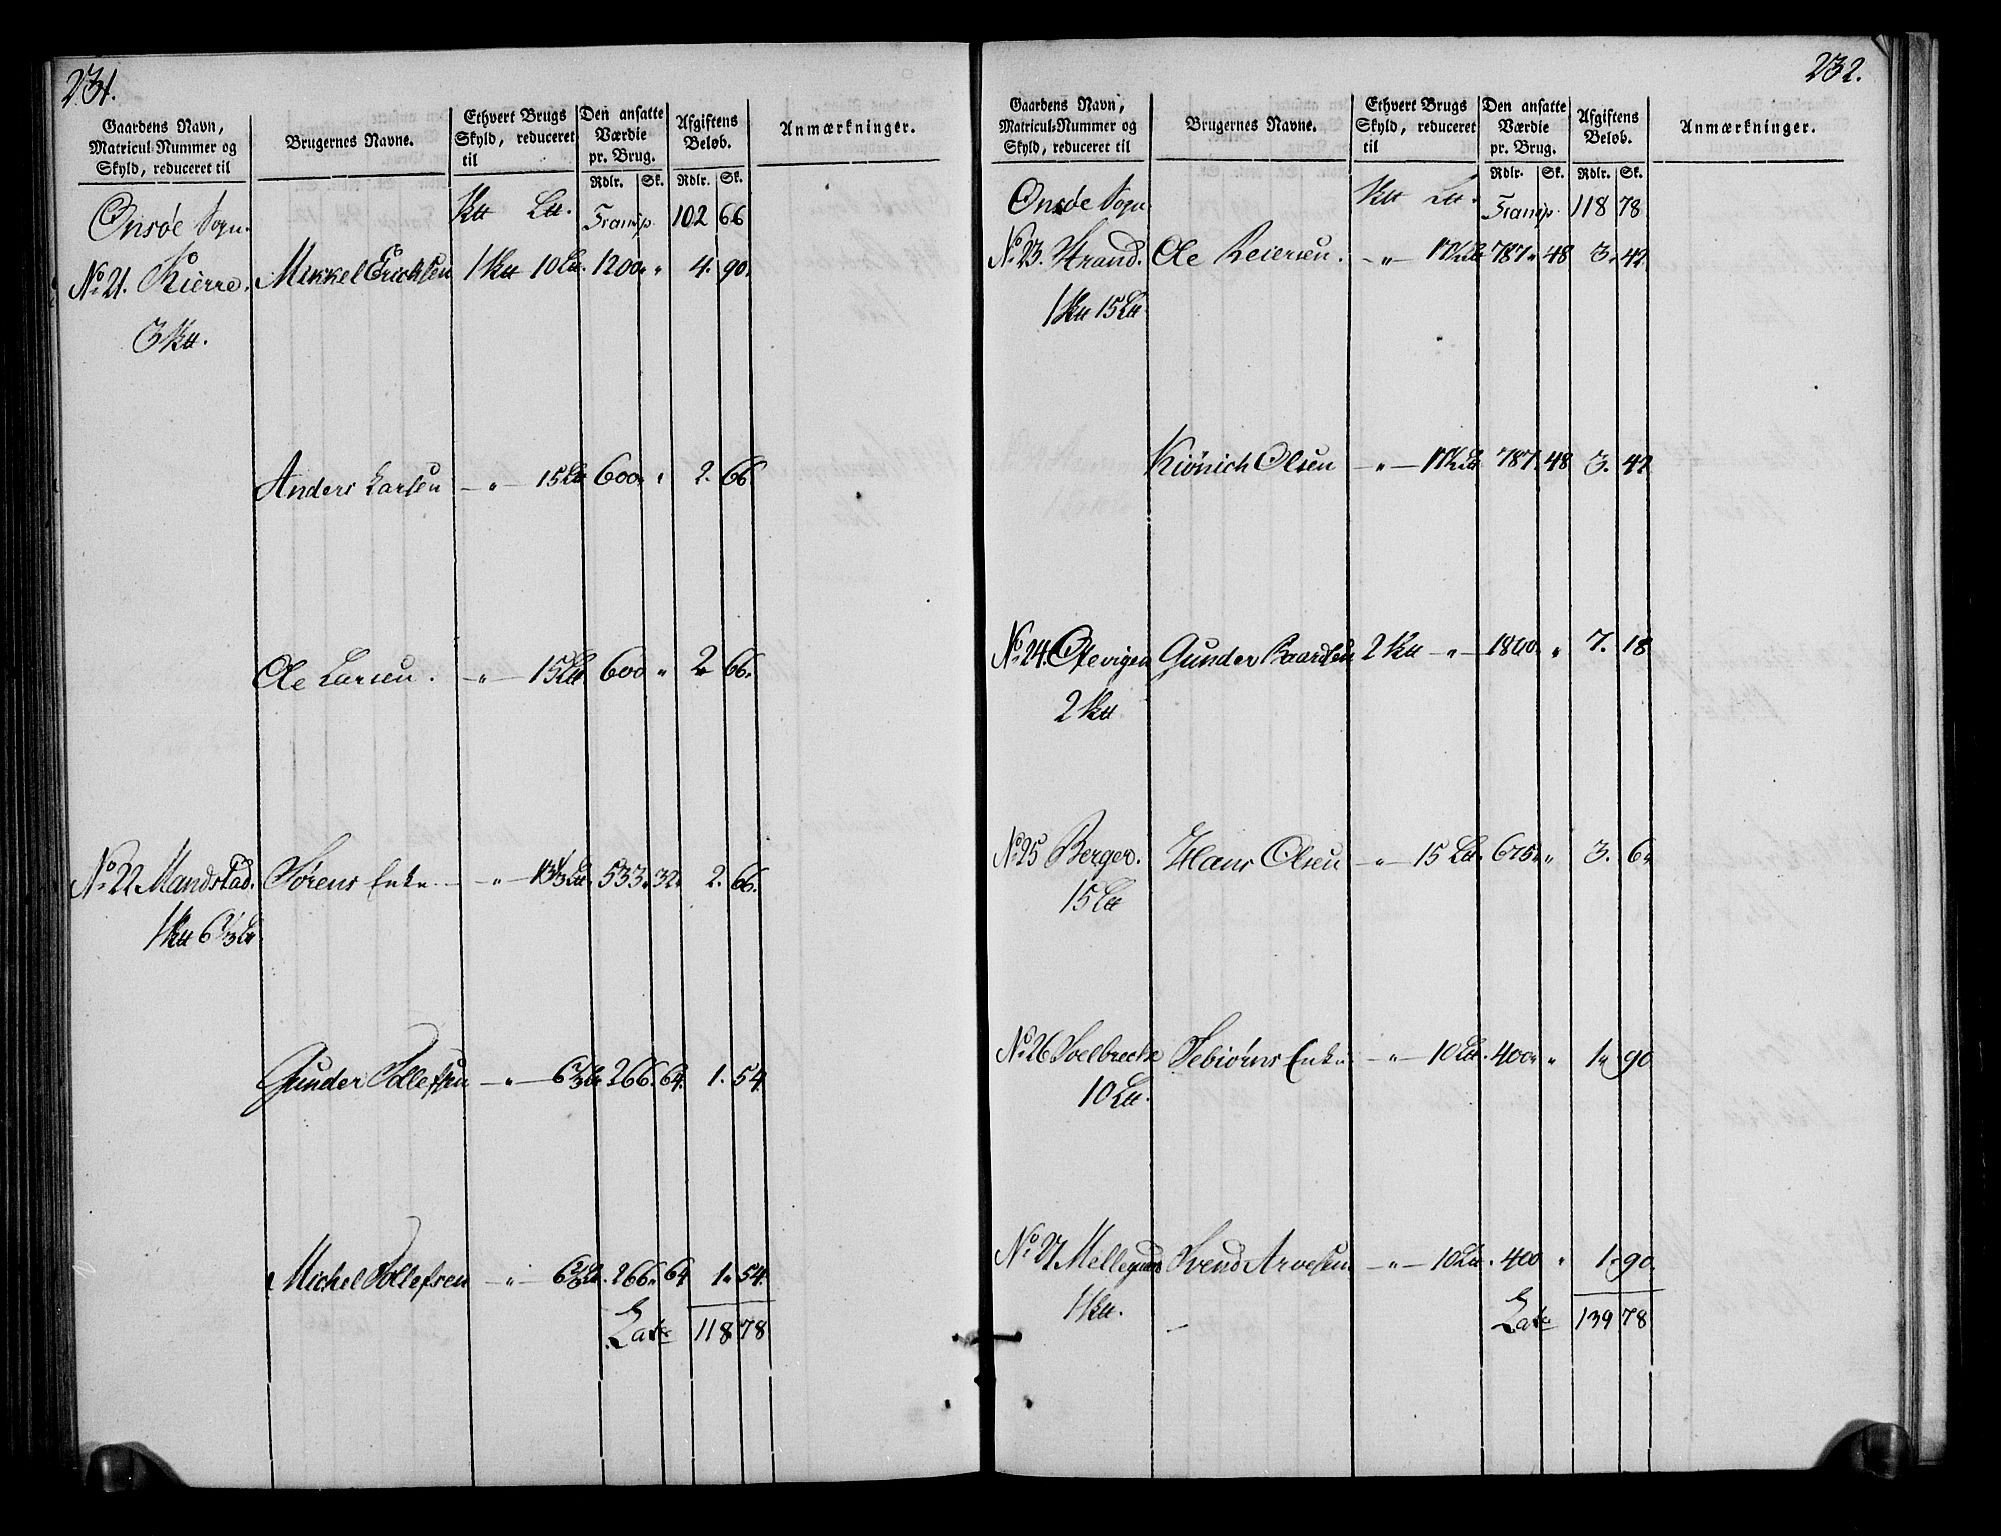 231.
Gaardens Navn, Matricul-Nummer og Skyld, reduceret til | Brugernes Navne. | Ethvert Brugs Skyld, reduceret til | Den ansatte Værdie pr. Brug. | Afgiftens Beløb. | Anmærkninger.
Rdlr. Sk. Rdlr. Sk.
Onsøe Sogn. Htt Ltt. Transp. 102 66
No. 21. Kierre. Mikkel Erichsen 1 Htt 10 Ltt. 1200 " 4. 90.
3 Htt.
Anders Larsen — " — 15 Ltt 600 " 2. 66.
Ole Larsen. — " — 15 Ltt 600 " 2 66.
No. 22 Mandstad. Sørens Enke — " — 13 1/3 Ltt. 533. 32. 2. 66.
1 Htt 6 2/3 Ltt.
Gunder Tollefsen — " — 6 2/3 Ltt. 266. 64. 1. 54.
Michel Tollefsen — " — 6 2/3 Ltt. 266. 64 1. 54.
Late 118 78
232.
Gaardens Navn, Matricul-Nummer og Skyld, reduceret til | Brugernes Navne. | Ethvert Brugs Skyld, reduceret til | Den ansatte Værdie pr. Brug. | Afgiftens Beløb. | Anmærkninger.
Rdlr. Sk. Rdlr. Sk.
Onsøe Sogn. Htt Ltt. Transp. 118 78
No. 23. Strand. Ole Reiersen. — " — 17 1/2 Ltt 787. 48 3. 42.
1 Htt 15 Ltt
Kiønich Olsen — " — 17 1/2 Ltt 787. 48 3. 42
No. 24. Elevigen Gunder Baardsen 2 Htt — " — 1800. " 7. 18
2 Htt
No. 25 Berger. Hans Olsen — " — 15 Ltt. 675. " 3. 6.
15 Ltt
No. 26 Soelbrecke Tebiørns Enke — " — 10 Ltt. 400. " 1. 90
10 Ltt.
No. 27 Svend Arvesen — " — 10 Ltt. 400 " 1. 90.
1 Htt.
Late 139 78